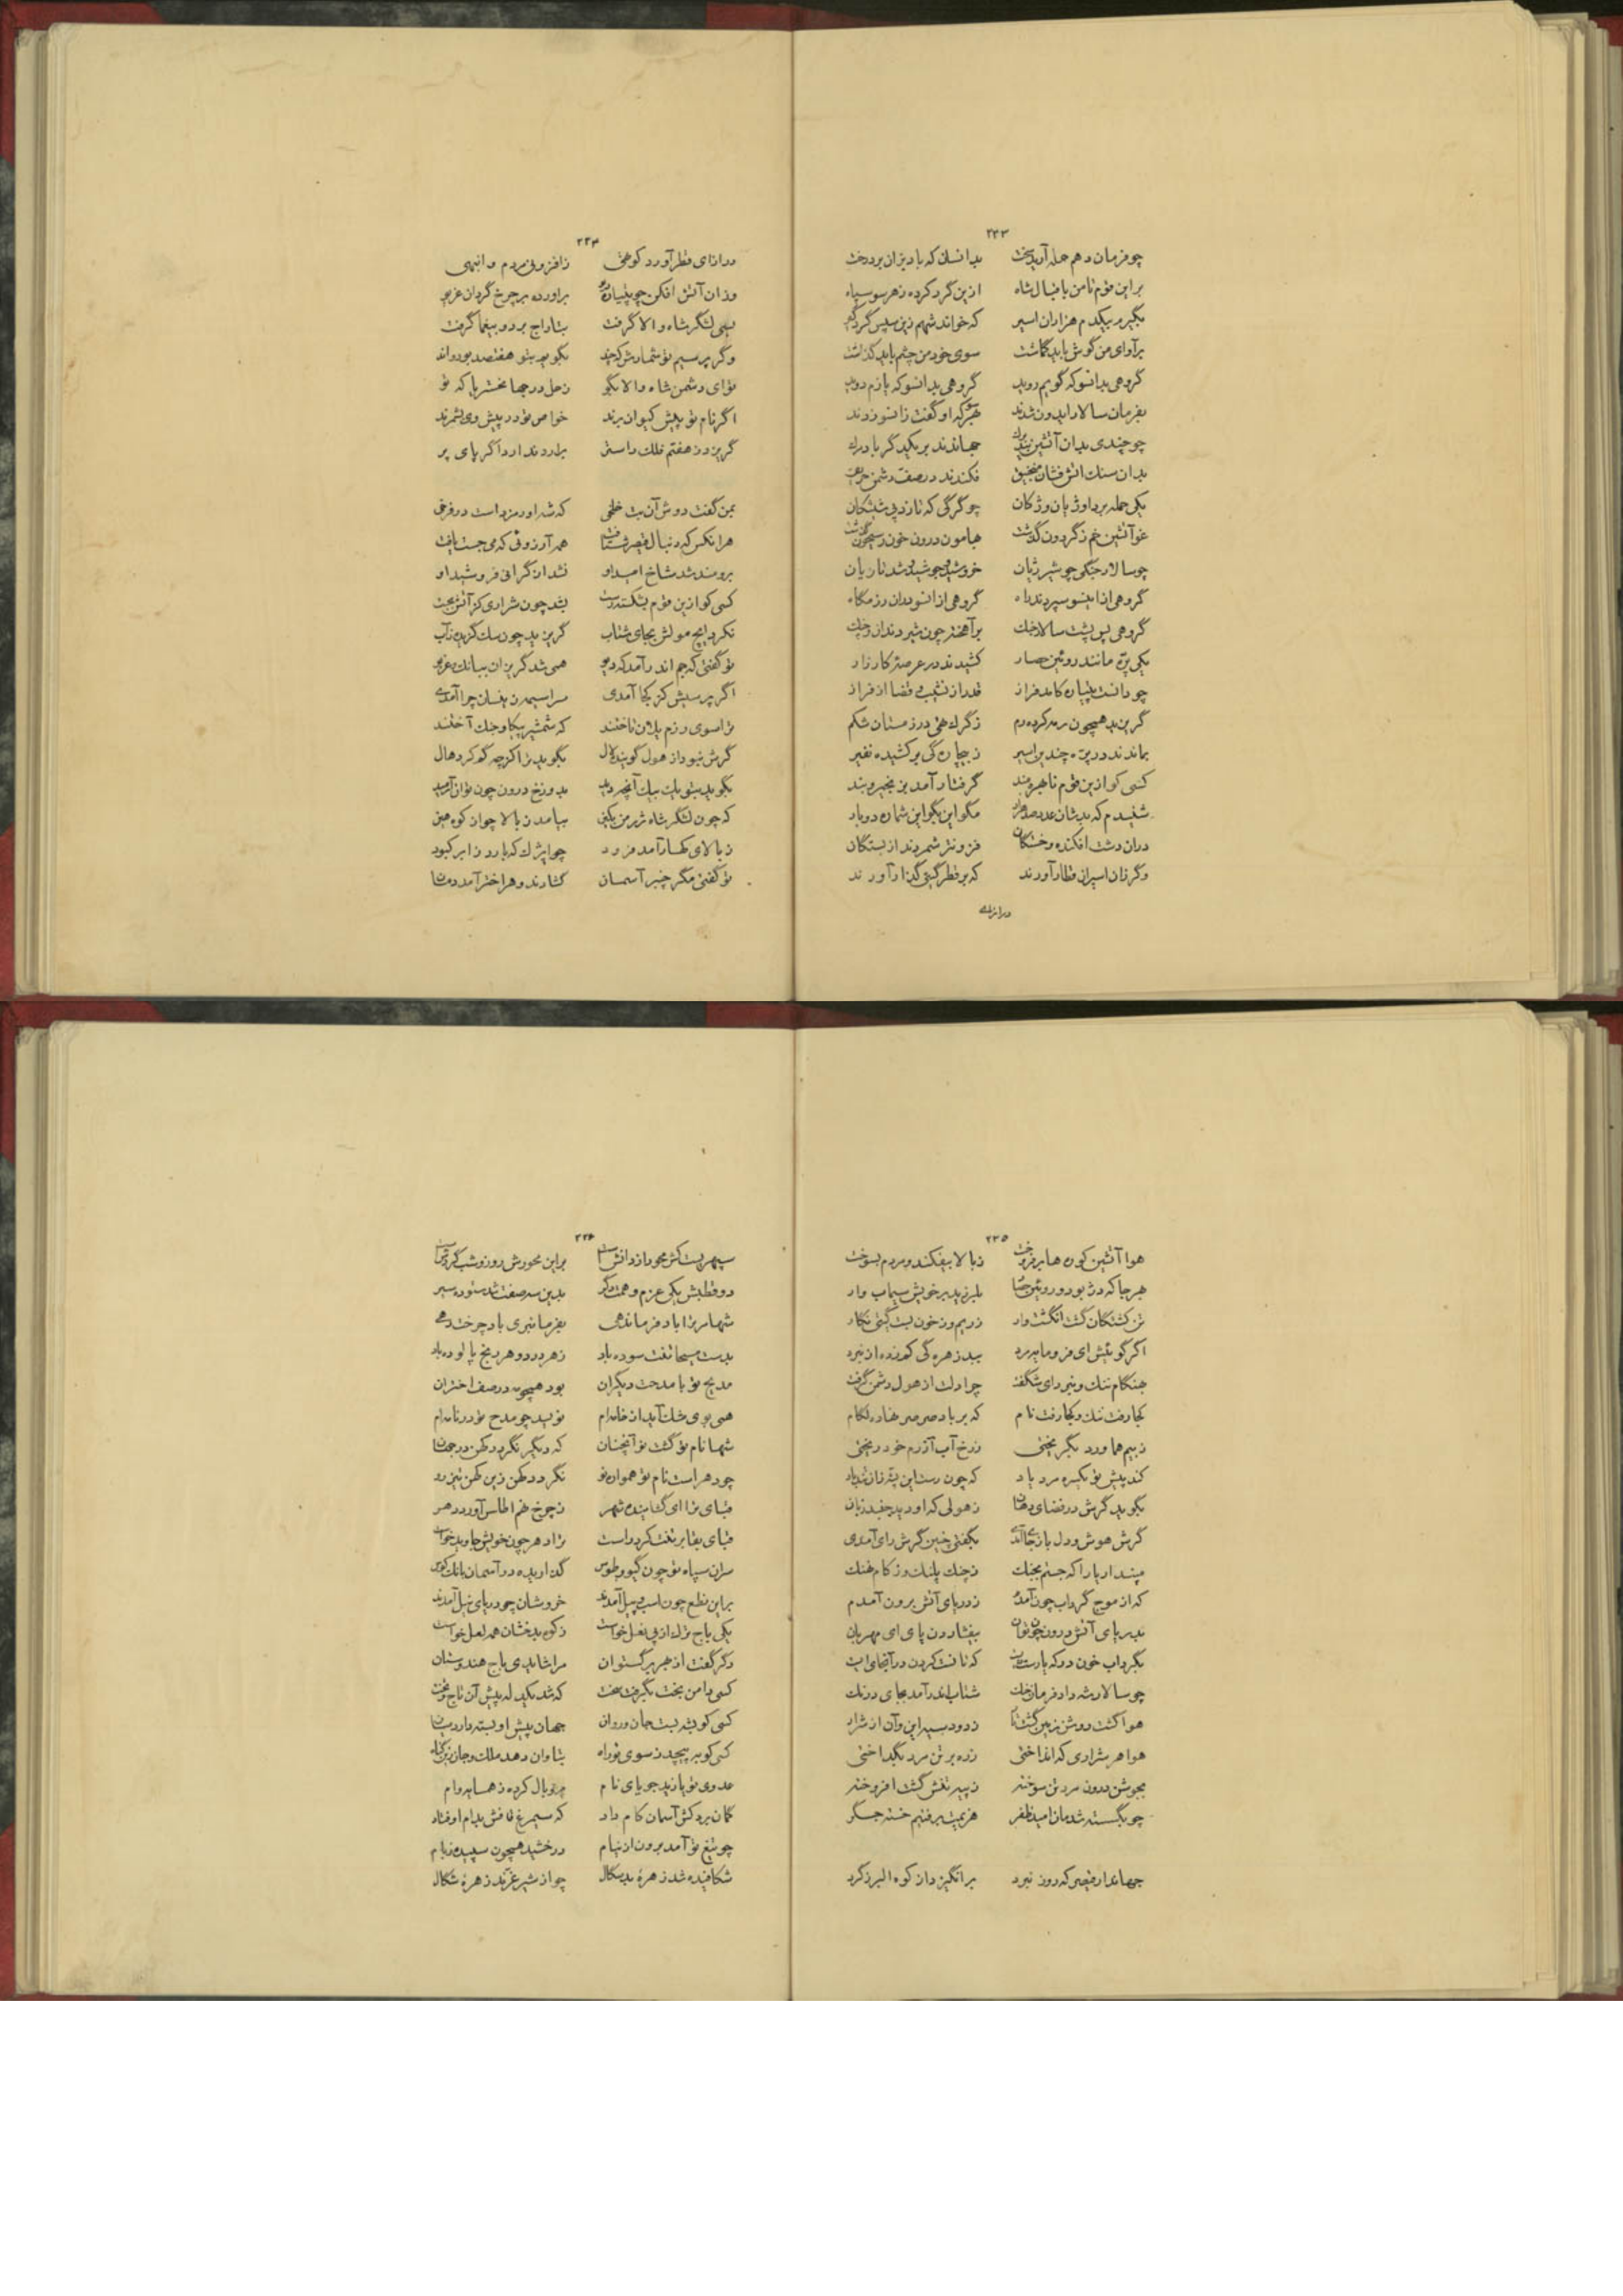 ۲۳۳
چو فرمان دهم حمله آرید سخت بدانسان که باد بزان بر درخت
بر این قوم تا من باقبال شاه ازین گرد کرده ز هر سو سپاه
بگیرم بیکدم هزاران اسیر که خواند شهم زین سپس گردگیر
برآوای من گوش باید گماشت سوی خود من چشم باید گذاشت
گروهی بدانسو که گویم روید گروهی بدانسو که یازم دوید
بفرمان سالار ایدون شدند بهر سو که او گفت زانسو زدند
چو چندی بدان آتشین تیره جهاندند بر یکدگر باد
بدان سنک اتش فشان منجنیق فکندند در صف دشمن حریق
یکی حمله برد اوژیان وژکان چو گرگی که تازد پی شیشکان
غو آتشین خم ز گردون گذشت بهامون درون خون ز سیحون گذشت
چو سالار جنگی چو شیر ژیان خروشید و جوشید و شد تازیان
گروهی از اینسو سپردند راه گروهی از انسو بدان رزمگاه
گروهی پس پشت سالار جنك برآهخته چون شیر دندان و چنك
یکی پرّه مانند روئین حصار کشیدند در عرصهٔ کارزار
چو دانست پتیاره کامد فراز قدر از نشیب و قضا از فراز
گریزید همچون رمه کرده رم ز گرك هفی در زمستان شکم
بماندند در پرّه چندین اسیر ز بیچارگی برکشیده نفیر
کسی کو ازین قوم نابهره‌مند گرفتار آمد بزنجیر و بند
شنیدم که بدشان عدد صد هزار مگو این بگو این شماره دو بار
در ان دشت افکنده و خستگان فزونتر شمردند از بستگان
وگر زان اسیران قطار آورند که بر قطر گیتی گذار آورند
درازای
۲۳۴
درازای قطر آورد کوتهی ز افزونی مردم و انبهی
وزان آتش افکن چو پتیاره دیو براورده بر چرخ گردان غریو
بسی لشگر شاه والا گرفت بتاراج برد و بیغما گرفت
وگر پرسیم تو شمارش که چند بگویم بتو هفتصد بود و اند
تو ای دشمن شاه والا بگو زحل در جهان خشتر یا که تو
اگر نام تو پیش کیوان برند خواص تو در پیش وی بشمرند
گریزد ز هفتم فلك راستر براردند ارد اگر پای پر
بمن گفت دوش آن بت خلخی که شه اورمزد است در فرخی
هر انکس که دنبال قیصر شتافت همه آرزوئی که می‌جست یافت
برومند شد شاخ امید او نشد ان گرانی فروشید او
کسی کو ازین قوم بشکسته رست بشد چون شراری کز آتش بجست
نکرد ایچ مولش بجای شتاب گریزید چون سك گزیده ز آب
تو گفتی که جم اندر آمد که دیو همی شد گریزان ببانك غریو
اگر پرسیش کز کجا آمدی سراسیمه زینسان چرا آمدی
ترا سوی رزم یلان تاختند که شمشیر پیکار و جنك آختند
گرش نیرو از هول گویند لال بگوید ز اکزچه گم کرد هال
بگوید بتو یك بیك آنچه دید بدوزخ درون چون توان آرمید
که چون لشگر شاه ژرمن یکین بیامد ز بالا چو از کوه هین
ز بالای کهسار آمد فرود چو ایژك که بارد ز ابر کبود
تو گفتی مگر چنبر آسمان گشادند و هر اختر آمد دمان
۲۳۵
هوا آتشین کوره‌ها بر فروخت ز بالا بیفکند و مردم بسوخت
بهرجا که دژ بود و روئین حصار بلرزید بر خویش سیماب وار
تن کشتگان گشت انگشت وار ز ریم وز خون بست گیتی نگار
اگر گوئیش ای فرومایه مرد بید زهره گی کم زده از نبرد
بهنگام ننك و نبرد ای شگفت چرا دلت از هول دشمن گرفت
کجا رفت ننك و کجا رفت نام که بر باد صرصر نهادی لگام
ز بیم هماورد بگریختی ز رخ آب آزرم خود ریختی
کند پیش تو یکسره مرد یاد که چون رست این پشه زان تندباد
بگوید گرش در فضای دهان ز هولی که او دید جفتد زبان
گرش هوش و دل باز جای آمدی بگفتی چنین گرش رای آمدی
مپندار یارا که جستم بجنك ز چنك پلنك وز کام نهنك
که از موج گرداب چون آمدم ز دریای آتش برون آمدم
بدریای آتش درون چون توان بیفشاردن پای ای مهربان
بگرداب خون در که یارست ایست که تا نشکردن در آنجای ایست
چو سالار شه داد فرمان جنك شتاب اندر آمد بجای درنك
هوا گشت روشن زمین گشت تار ز دود سیه این و آن از شرار
هوا هر شراری که انداختی زره بر تن مرد بگداختی
بجوشن درون مرد تن سوخته ز پیه تفش گشت افروخته
چو بگسسته شدمان امید ظفر هزیمت برفتیم خسته جگر
جهاندار قیصر که روز نبرد برانگیزد از کوه البرز گرد
۲۳۶
سپهریست کش محور از دانش است بر این محورش روز و شب گردش است
دو قطبش یکی عزم و همت دگر بدین سه صفت شد ستوده سیر
شها مر ترا باد فرماندهی بفرمانبری باد چرخت رهی
بدست مسیحا تنت سوده باد ز هر درد و هر رنج پالوده باد
مدیح تو با مدحت دیگران بود همچو مه در صف اختران
همی بوی مشك آید از خامه‌ام نویسد چو مدح تو در نامه‌ام
شها نام تو گشت نو آنچنان که دیگر نگردد کهن در جهان
چو دهر است نام تو همواره نو نگردد کهن زین کهن تیز رو
قبای ترا ای گشاینده شهر ز چرخ نهم اطلس آورد دهر
قبای بقا بر تنت کرد راست ترا دهر چون خویش جاوید خواست
سران سپاه تو چون گیو و طوس گذاریده در آسمان بانك کوس
بر این نطع چون اسب و پیل آمدند خروشان چو دریای نیل آمدند
یکی باج ترك از پی نعل خواست ز کوه بدخشان همه لعل خواست
دگر گفت از بهر برگستوان مرا شایدی باج هندوستان
کسی دامن بخت بگرفت سخت که شد یکدله پیش آن تاج و تخت
کسی کو بتو بست جان و روان جهان پیش او بسته دارد میان
کسی کو بپیچد ز سوی تو راه بتاوان دهد ملك و جان زین گناه
عدوی تو یازید جویای نام پر و بال کرده ز همسایه وام
گمان برد کش آسمان کام داد که سیمرغ قافش بدام اوفتاد
چو تیغ تو آمد برون از نیام درخشید همچون سپیده ز بام
شکافیده شد زهرهٔ بدسگال چو از شیر غرنده زهرهٔ شگال